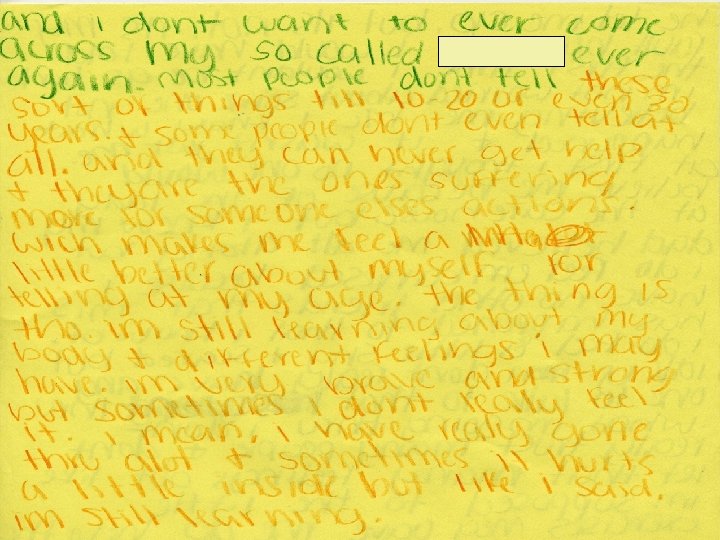 and i dont want to ever come
across my so called ever
again. most people dont tell these
sort of things till 10 20 or even 30
years. + some people dont even tell at
all. and they can never get help
+ they are the ones suffering
more for someone elses actions.
wich makes me feel a
little better about myself for
telling at my age. the thing is
tho. im still learning about my
body + different feelings i may
have. im very brave and strong
but sometimes i dont really feel
it. i mean, i have really gone
thru alot + sometimes it hurts
a little inside but like i said.
im still learning.